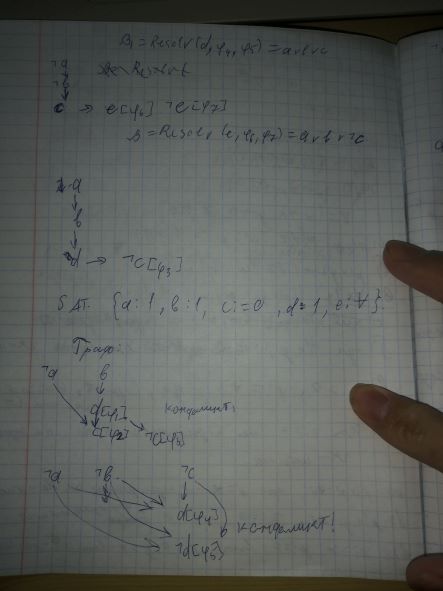 B₁ = Resolv(d, φ₄, φ₅) = a ∨ b ∨ c
¬a
¬b
c → e[φ₆] ¬e[φ₇]
B = Resolv(e, φ₆, φ₇) = a ∨ b ∨ ¬c
a
b
d → ¬c[φ₃]
SAT. {a:1, b:1, c:=0, d:=1, e:∀}.
Граф:
¬a b
d[φ₁] конфликт!
c[φ₂] ¬c[φ₃]
¬a ¬b ¬c
d[φ₄]
конфликт!
¬d[φ₅]